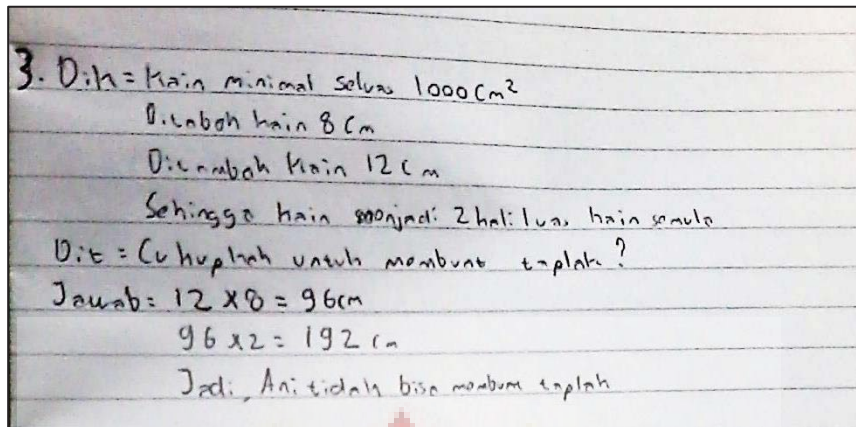 3. Dik = Kain minimal seluas 1000 cm²
Ditambah kain 8 cm
Ditambah kain 12 cm
Sehingga kain menjadi 2 kali luas kain semula
Dit = Cukupkah untuk membuat taplak?
Jawab = 12 x 8 = 96 cm
96 x 2 = 192 cm
Jadi, Ani tidak bisa membuat taplak